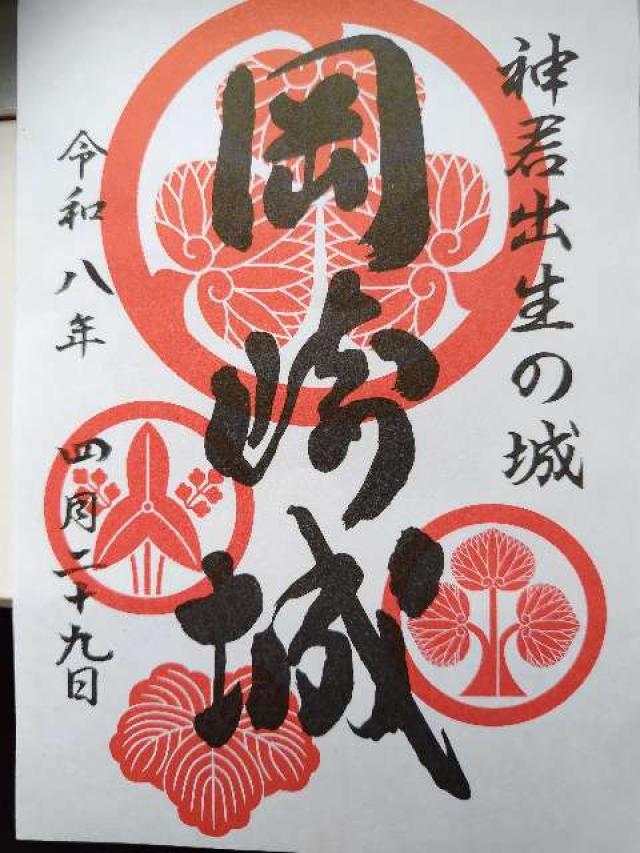 神君出生の城
岡崎城
令和八年 四月二十九日